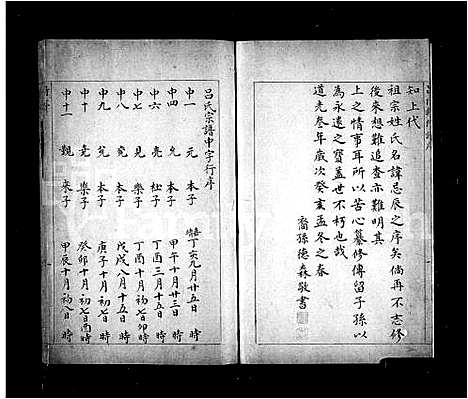 知上代
祖宗姓氏名諱忌辰之序矣倘再不志修
後來想難追查亦難明其
上之情事耳所以苦心纂修傳留子孫以
為永遠之寶蓋世不朽也哉
道光叁年歲次癸亥孟冬之春
裔孫德森敬書
呂氏宗譜申字行序
申一 元 本子 丁亥九月廿五日 時
申四 允 本子 甲午十月廿三日 時
申六 亮 社子 丁酉三月十五日 時
申七 見 樂子 丁酉十月初七日卯時
申八 堯 本子 戊戌八月十五日 時
申九 兗 本子 庚子十月初七日 時
申十 競 樂子 癸卯十月初七日酉時
申十一 觀 來子 甲辰十月初一日 時